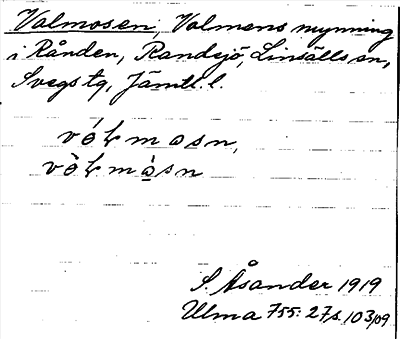 Valmosen, Valmens mynning
i Rånden, Randsjö, Linsälls sn,
Svegs tg, Jämtl. l.
S. Åsander 1919
Ulma 755: 27, s. 103/09